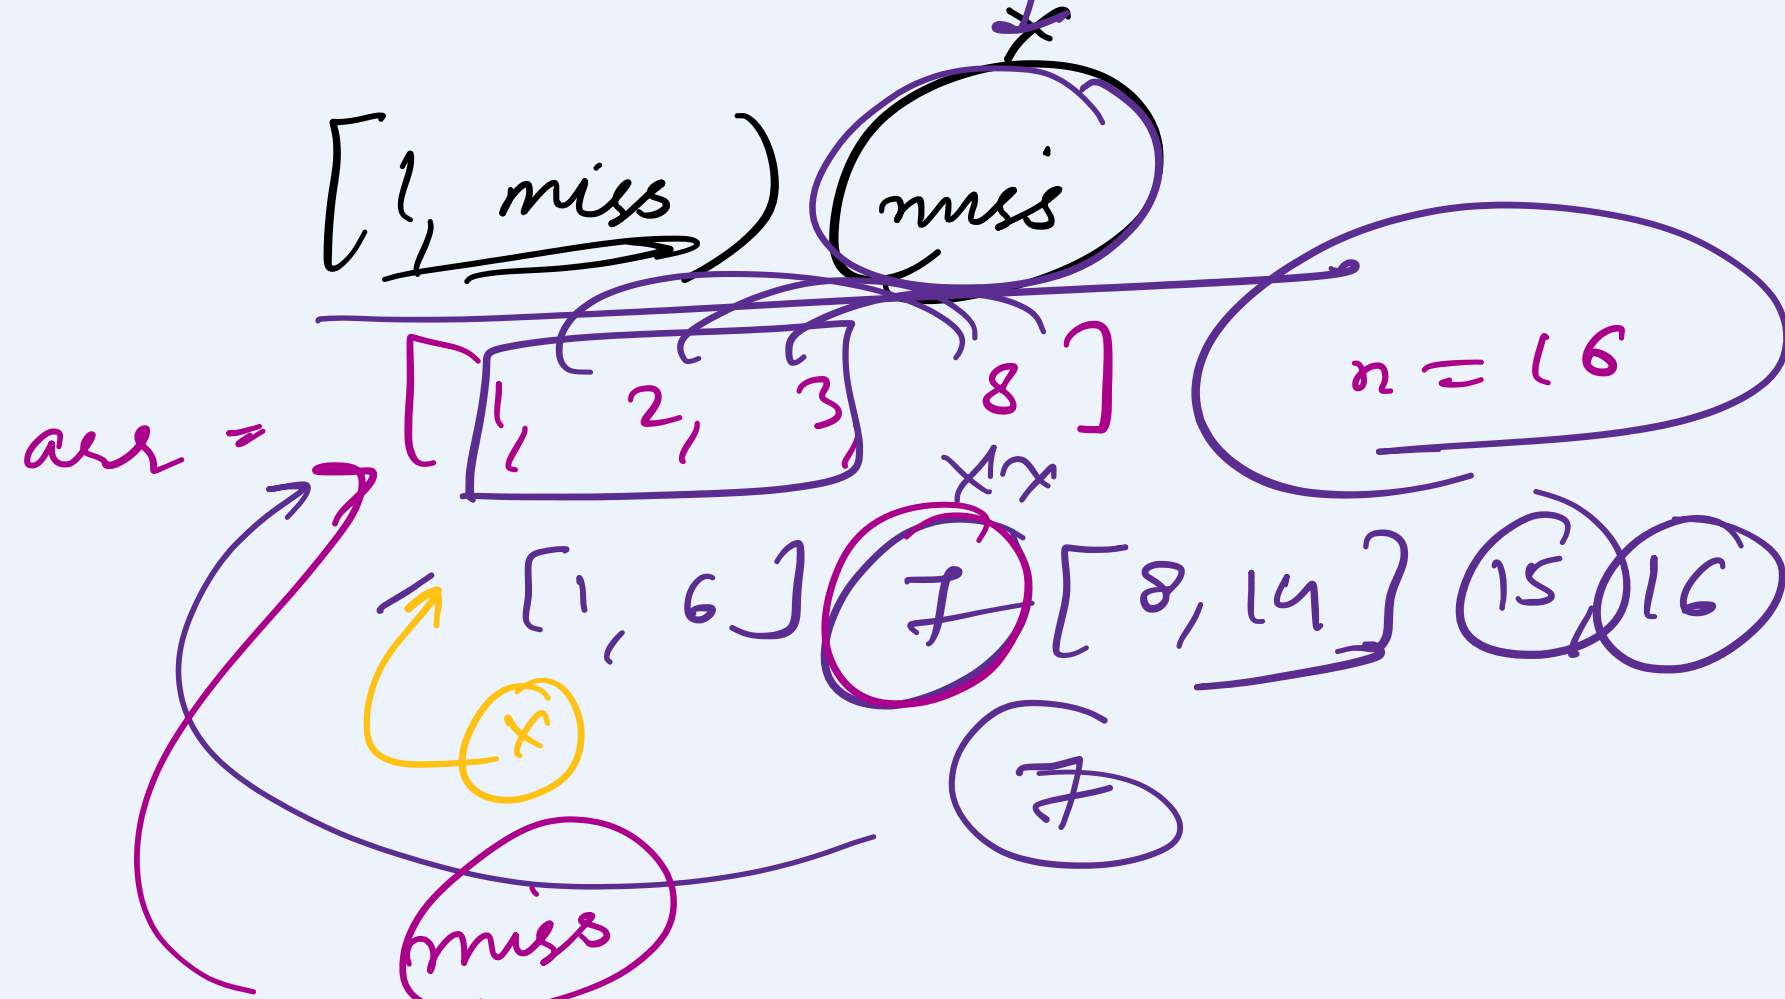 [1, miss) miss
arr = [1, 2, 3, 8] n = 16
[1, 6] 7 [8, 14] 15, 16
x 7
miss